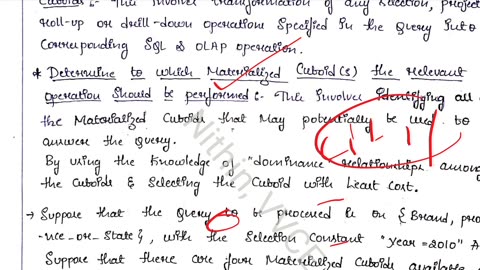 Cuboids :- This Involve transformation of any Selection, project
Roll-up or drill-down operation Specified In the Query Into
Corresponding SQL & OLAP operation.
* Determine to which Materialized Cuboid(s) the Relevant
operation Should be performed :- This Involve Identifying all
the Materialized Cuboids that May potentially be used to
answer the Query.
By using the Knowledge of "dominance" Relationships among
the Cuboids & Selecting the Cuboid with Least Cost.
→ Suppose that the Query to be processed is on {Brand, pro
-nce_or_State}, with the Selection Constant "year = 2010" A
Suppose that there are four Materialized Cuboids available